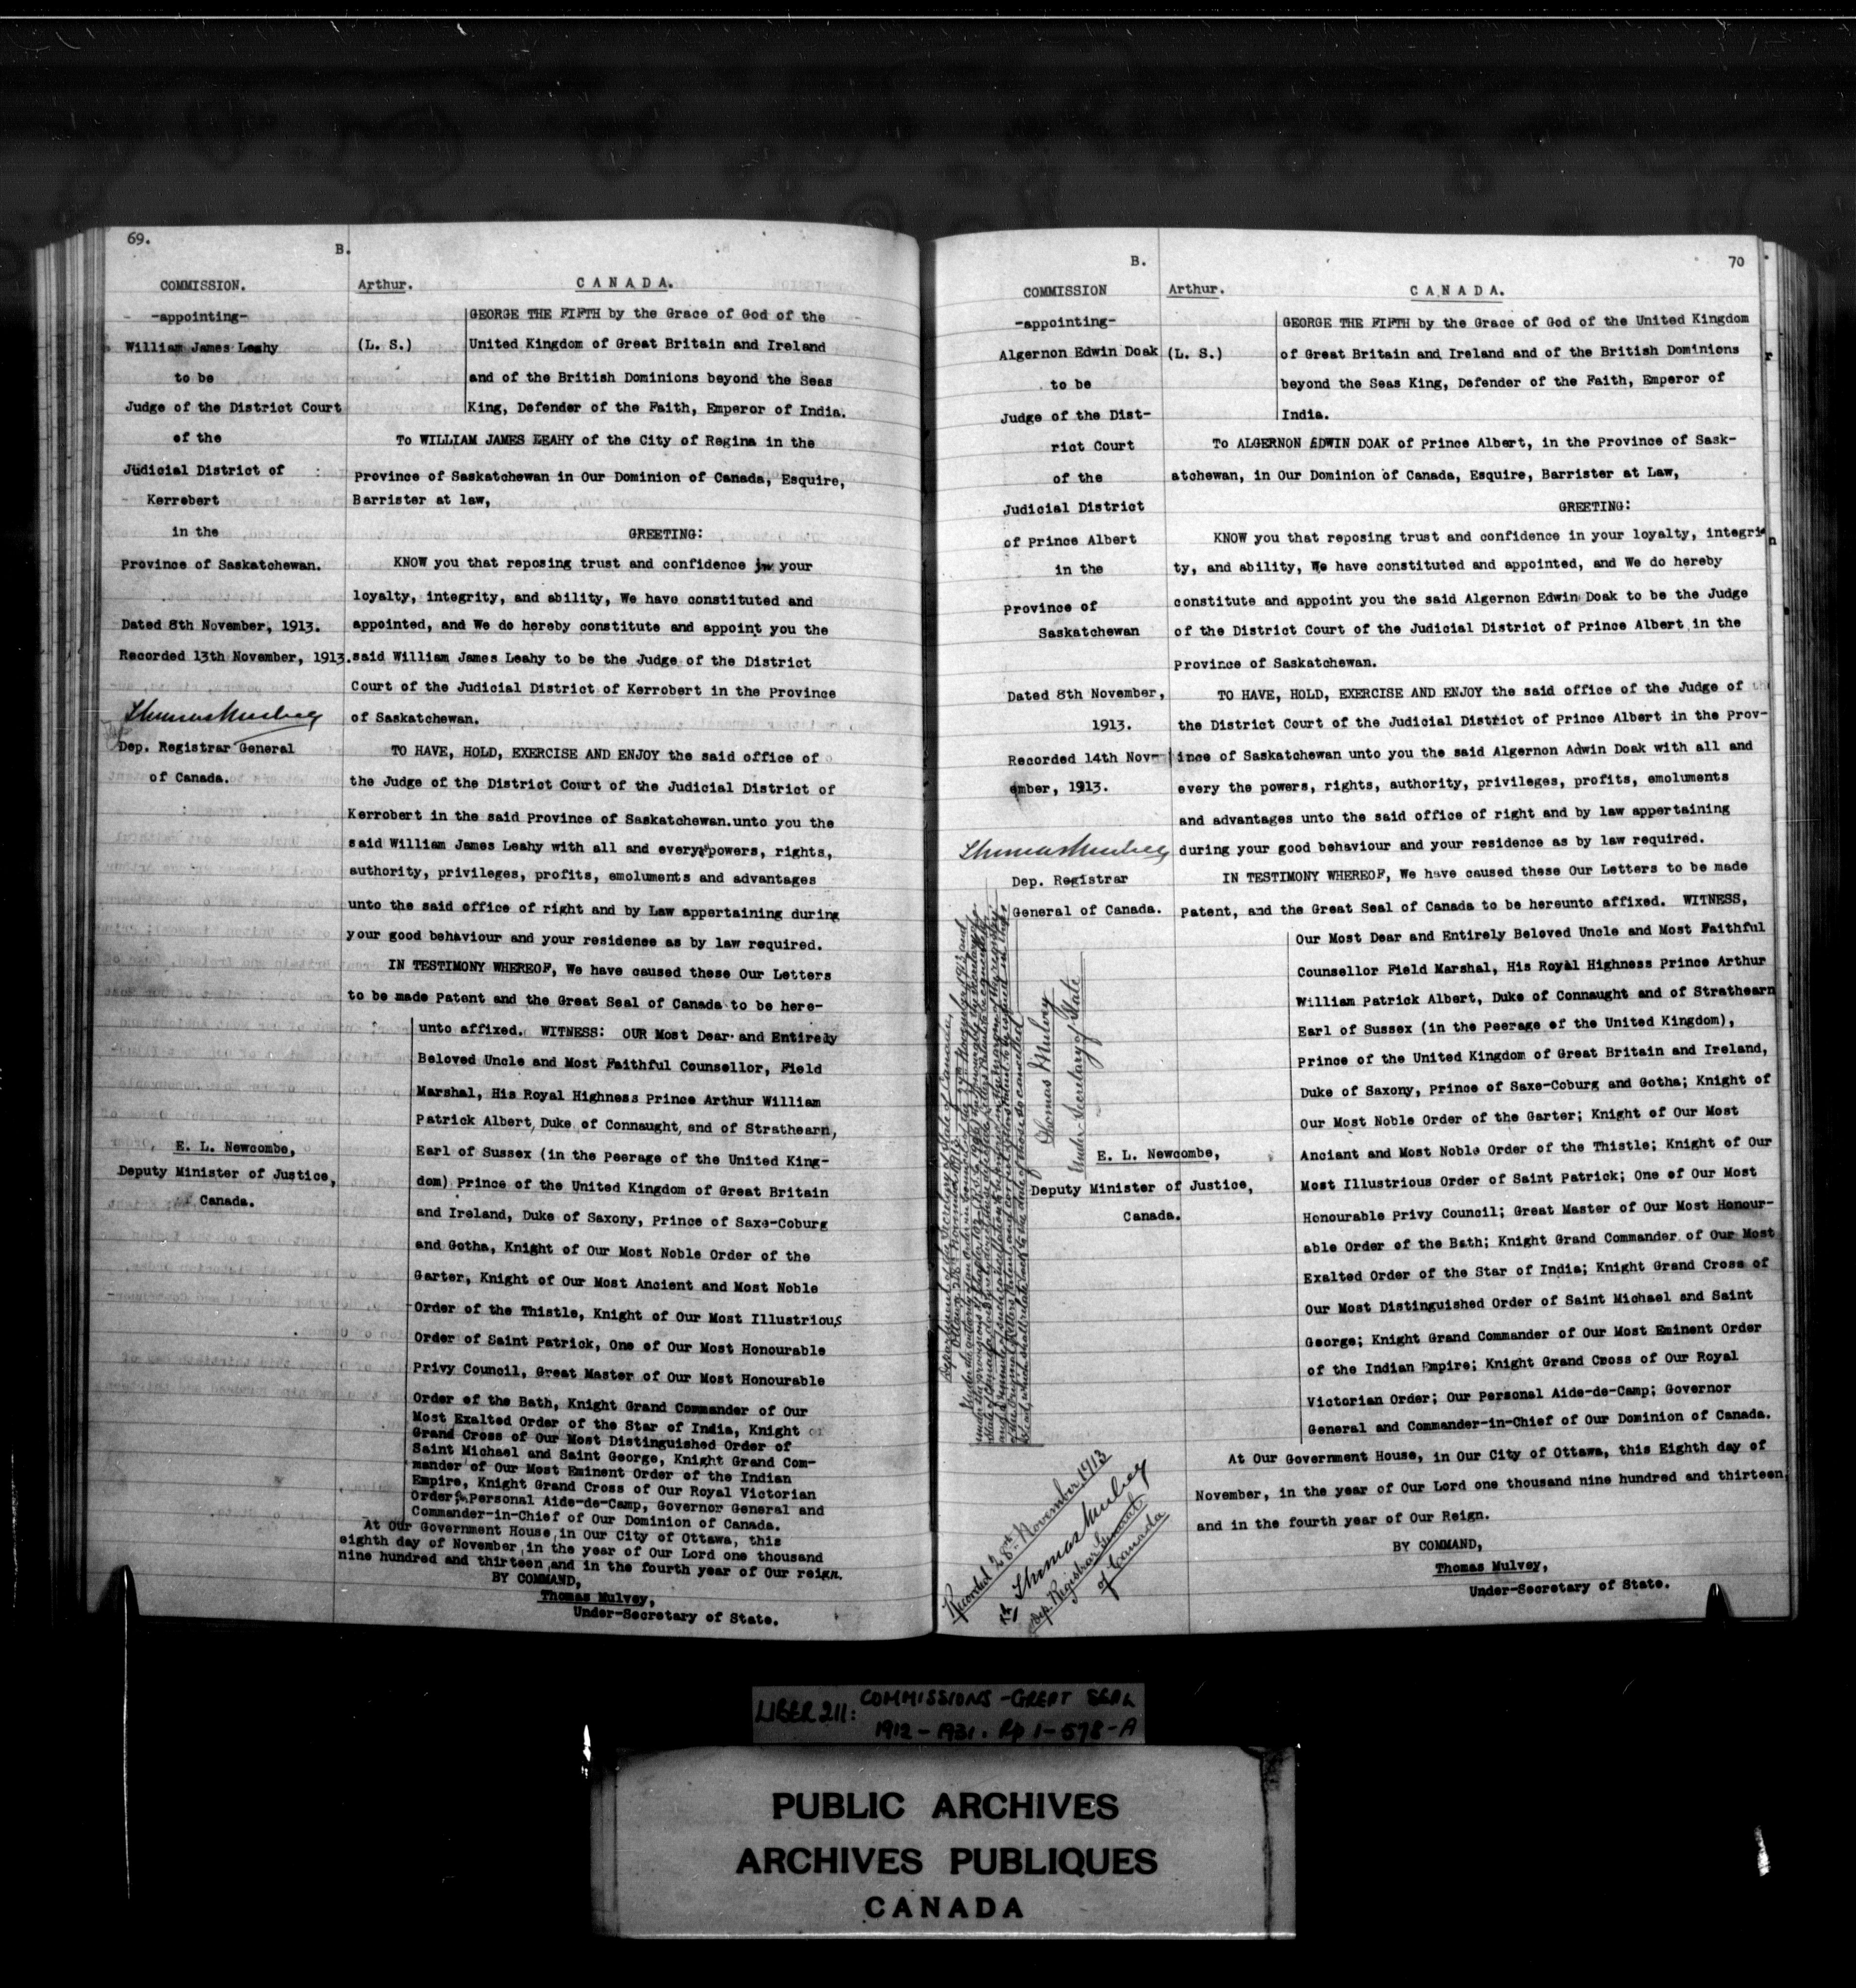 69.
B.
COMMISSION.
-appointing-
William James Leahy
to be
Judge of the District Court
of the
Judicial District of
Kerrobert
in the
Province of Saskatchewan.
Dated 8th November, 1913.
Recorded 13th November, 1913.
Thomas Mulvey
Dep. Registrar General
of Canada.
E. L. Newcombe,
Deputy Minister of Justice,
Canada.
Arthur.
CANADA.
(L. S.)
GEORGE THE FIFTH by the Grace of God of the
United Kingdom of Great Britain and Ireland
and of the British Dominions beyond the Seas
King, Defender of the Faith, Emperor of India.
To WILLIAM JAMES LEAHY of the City of Regina in the
Province of Saskatchewan in Our Dominion of Canada, Esquire,
Barrister at law,
GREETING:
KNOW you that reposing trust and confidence in your
loyalty, integrity, and ability, We have constituted and
appointed, and We do hereby constitute and appoint you the
said William James Leahy to be the Judge of the District
Court of the Judicial District of Kerrobert in the Province
of Saskatchewan.
TO HAVE, HOLD, EXERCISE AND ENJOY the said office of
the Judge of the District Court of the Judicial District of
Kerrobert in the said Province of Saskatchewan.unto you the
said William James Leahy with all and every powers, rights,
authority, privileges, profits, emoluments and advantages
unto the said office of right and by Law appertaining during
your good behaviour and your residence as by law required.
IN TESTIMONY WHEREOF, We have caused these Our Letters
to be made Patent and the Great Seal of Canada to be here-
unto affixed. WITNESS: OUR Most Dear and Entirely
Beloved Uncle and Most Faithful Counsellor, Field
Marshal, His Royal Highness Prince Arthur William
Patrick Albert, Duke of Connaught, and of Strathearn,
Earl of Sussex (in the Peerage of the United King-
dom) Prince of the United Kingdom of Great Britain
and Ireland, Duke of Saxony, Prince of Saxe-Coburg
and Gotha, Knight of Our Most Noble Order of the
Garter, Knight of Our Most Ancient and Most Noble
Order of the Thistle, Knight of Our Most Illustrious
Order of Saint Patrick, One of Our Most Honourable
Privy Council, Great Master of Our Most Honourable
Order of the Bath, Knight Grand Commander of Our
Most Exalted Order of the Star of India, Knight
Grand Cross of Our Most Distinguished Order of
Saint Michael and Saint George, Knight Grand Com-
mander of Our Most Eminent Order of the Indian
Empire, Knight Grand Cross of Our Royal Victorian
Order, Personal Aide-de-Camp, Governor General and
Commander-in-Chief of Our Dominion of Canada.
At Our Government House, in Our City of Ottawa, this
eighth day of November, in the year of Our Lord one thousand
nine hundred and thirteen and in the fourth year of Our reign.
BY COMMAND,
Thomas Mulvey,
Under-Secretary of State.
B.
70
COMMISSION
-appointing-
Algernon Edwin Doak
to be
Judge of the Dist-
rict Court
of the
Judicial District
of Prince Albert
in the
Province of
Saskatchewan
Dated 8th November,
1913.
Recorded 14th Nov-
ember, 1913.
Thomas Mulvey
Dep. Registrar
General of Canada.
Thomas Mulvey
Under-Secretary of State
E. L. Newcombe,
Deputy Minister of Justice,
Canada.
Recorded 28th November 1913
Thomas Mulvey
Dep. Registrar General
of Canada
Arthur.
CANADA.
(L. S.)
GEORGE THE FIFTH by the Grace of God of the United Kingdom
of Great Britain and Ireland and of the British Dominions
beyond the Seas King, Defender of the Faith, Emperor of
India.
To ALGERNON EDWIN DOAK of Prince Albert, in the Province of Sask-
atchewan, in Our Dominion of Canada, Esquire, Barrister at Law,
GREETING:
KNOW you that reposing trust and confidence in your loyalty, integri-
ty, and ability, We have constituted and appointed, and We do hereby
constitute and appoint you the said Algernon Edwin Doak to be the Judge
of the District Court of the Judicial District of Prince Albert in the
Province of Saskatchewan.
TO HAVE, HOLD, EXERCISE AND ENJOY the said office of the Judge of
the District Court of the Judicial District of Prince Albert in the Prov-
ince of Saskatchewan unto you the said Algernon Adwin Doak with all and
every the powers, rights, authority, privileges, profits, emoluments
and advantages unto the said office of right and by law appertaining
during your good behaviour and your residence as by law required.
IN TESTIMONY WHEREOF, We have caused these Our Letters to be made
Patent, and the Great Seal of Canada to be hereunto affixed. WITNESS,
Our Most Dear and Entirely Beloved Uncle and Most Faithful
Counsellor Field Marshal, His Royal Highness Prince Arthur
William Patrick Albert, Duke of Connaught and of Strathearn
Earl of Sussex (in the Peerage of the United Kingdom),
Prince of the United Kingdom of Great Britain and Ireland,
Duke of Saxony, Prince of Saxe-Coburg and Gotha; Knight of
Our Most Noble Order of the Garter; Knight of Our Most
Anciant and Most Noble Order of the Thistle; Knight of Our
Most Illustrious Order of Saint Patrick; One of Our Most
Honourable Privy Council; Great Master of Our Most Honour-
able Order of the Bath; Knight Grand Commander of Our Most
Exalted Order of the Star of India; Knight Grand Cross of
Our Most Distinguished Order of Saint Michael and Saint
George; Knight Grand Commander of Our Most Eminent Order
of the Indian Empire; Knight Grand Cross of Our Royal
Victorian Order; Our Personal Aide-de-Camp; Governor
General and Commander-in-Chief of Our Dominion of Canada.
At Our Government House, in Our City of Ottawa, this Eighth day of
November, in the year of Our Lord one thousand nine hundred and thirteen
and in the fourth year of Our Reign.
BY COMMAND,
Thomas Mulvey,
Under-Secretary of State.
LIBER 211: COMMISSIONS - GREAT SEAL
1912 - 1931. Pp 1-578-A
PUBLIC ARCHIVES
ARCHIVES PUBLIQUES
CANADA